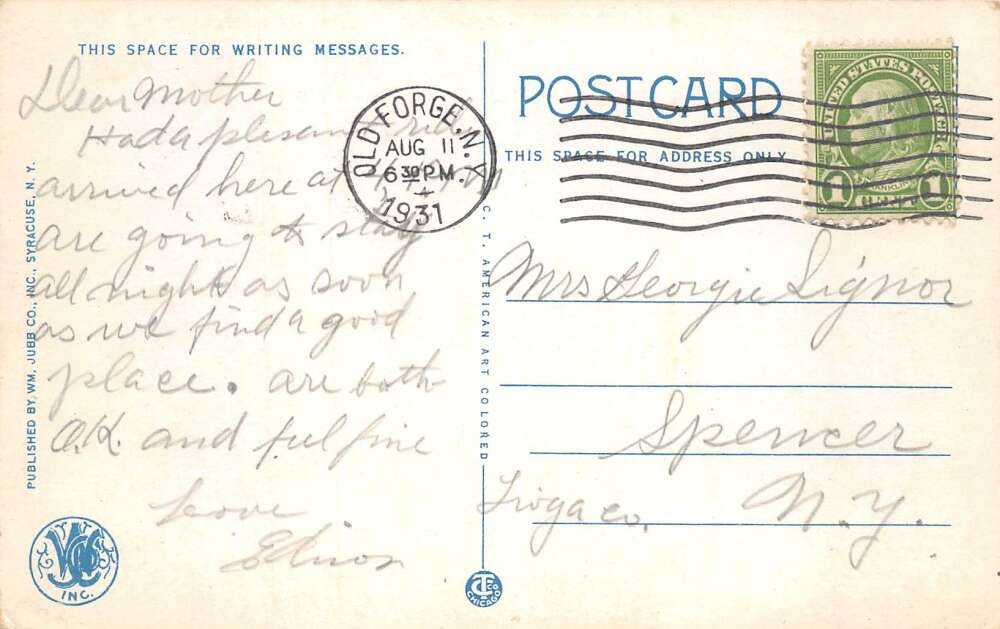 THIS SPACE FOR WRITING MESSAGES.
Dear Mother
Had a plesant ride
arrived here at
are going to stay
all night as soon
as we find a good
place. are both
O.K. and feel fine
Love
PUBLISHED BY WM. JUBB CO., INC., SYRACUSE, N. Y.
INC.
C. T. AMERICAN ART COLORED
CT CO
CHICAGO
OLD FORGE, N.Y.
AUG 11
6 30 PM
1931
POST CARD
THIS SPACE FOR ADDRESS ONLY
UNITED STATES POSTAGE
FRANKLIN
1 CENT 1
Mrs Georgie Signor
Spencer
Tioga Co. N. Y.